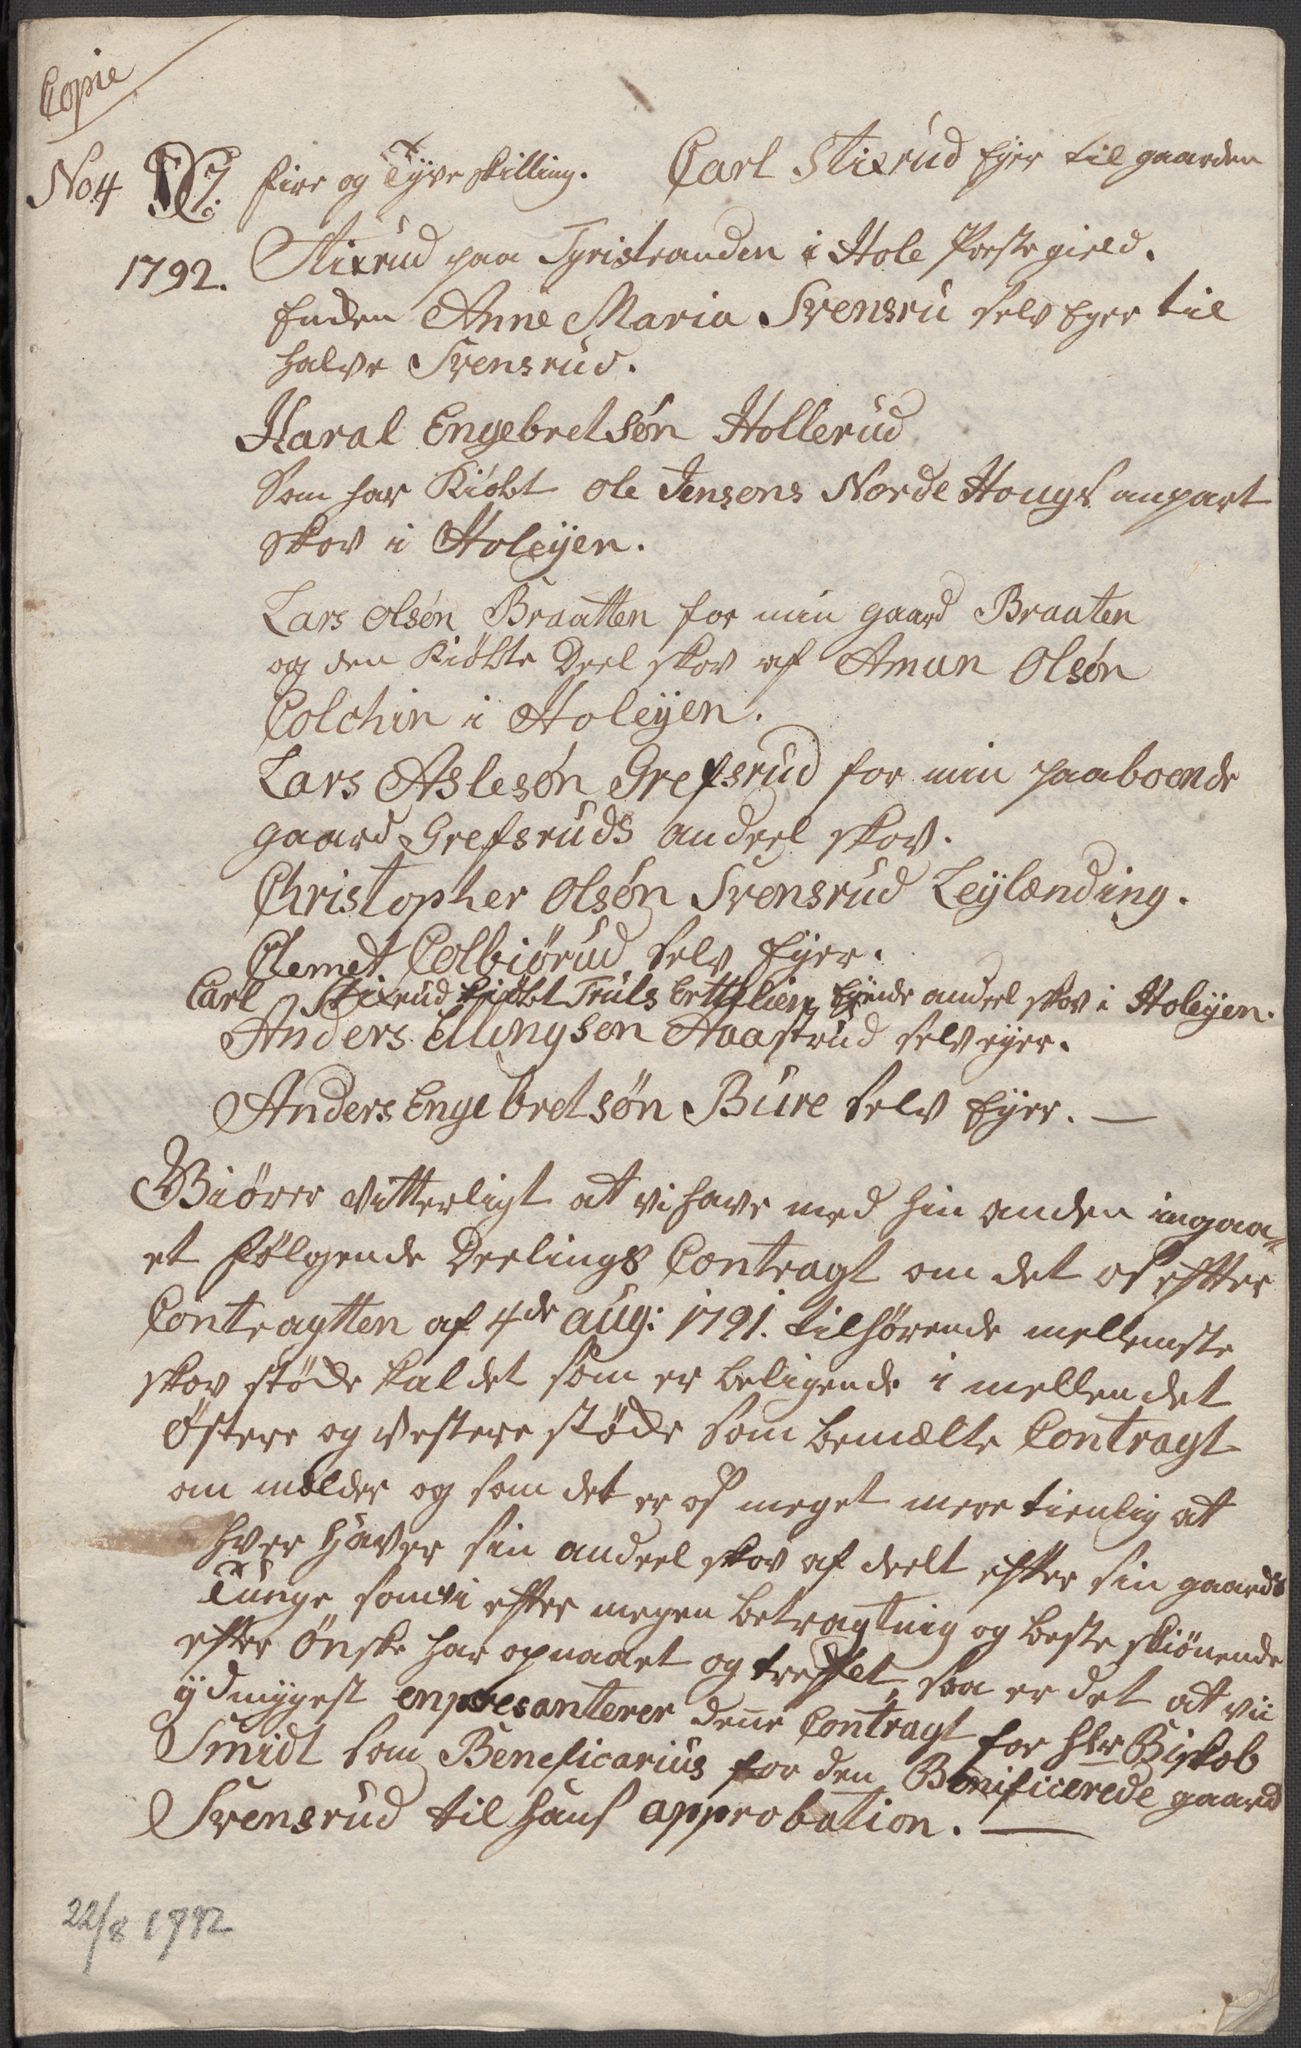 Copie
No 4 C7. fire og Tyve skilling. Carl Stixrud Eyer til gaarden
1792. Stixrud paa Tyristranden i Hole Præstegield.
Enden Anne Maria Svensru selv Eyer til
halve Svensrud.
Haral Engebretsøn Hollerud
som har Kiøbt Ole Jensens Norde Hougs anpart
skov i Holeyen.
Lars Olsøn Braatten for min gaard Braaten
og den Kiøbte Deel skov af Amun Olsøn
Colchin i Holeyen.
Lars Aslesøn Grefsrud for min paaboende
gaard Grefsruds andeel skov.
Christopher Olsøn Svensrud Leylænding.
Clemet Colbiørud selv Eyer.
Carl Stixrud Kiøbt Truls Eyende andeel skov i Holeyen.
Anders Ellingsøn Aaastrud selv eyer.
Anders Engebretsøn Bure selv Eyer. —
Giører vitterligt at vi have med hin anden ingaa=
et følgende Deelings Contragt om det os efter
Contragtten af 4de aug: 1791. tilhørende mellemste
skov støde kaldet som er beligende i mellen det
østere og vestere støde som bemælte Contragt
om mælder og som det er os meget mere tienlig at
hver haver sin andeel skov af deelt efter sin gaards
Tunge som vi efter megen betragtnig og beste skiønende
efter ønske har opnaaet og treffet, saa er det at vii
ydmygest enpresanterer denne Contragt for Hr Biskob
Smidt som Beneficarius for den Benificerede gaard
Svensrud til hans approbation. —
22/8 1792